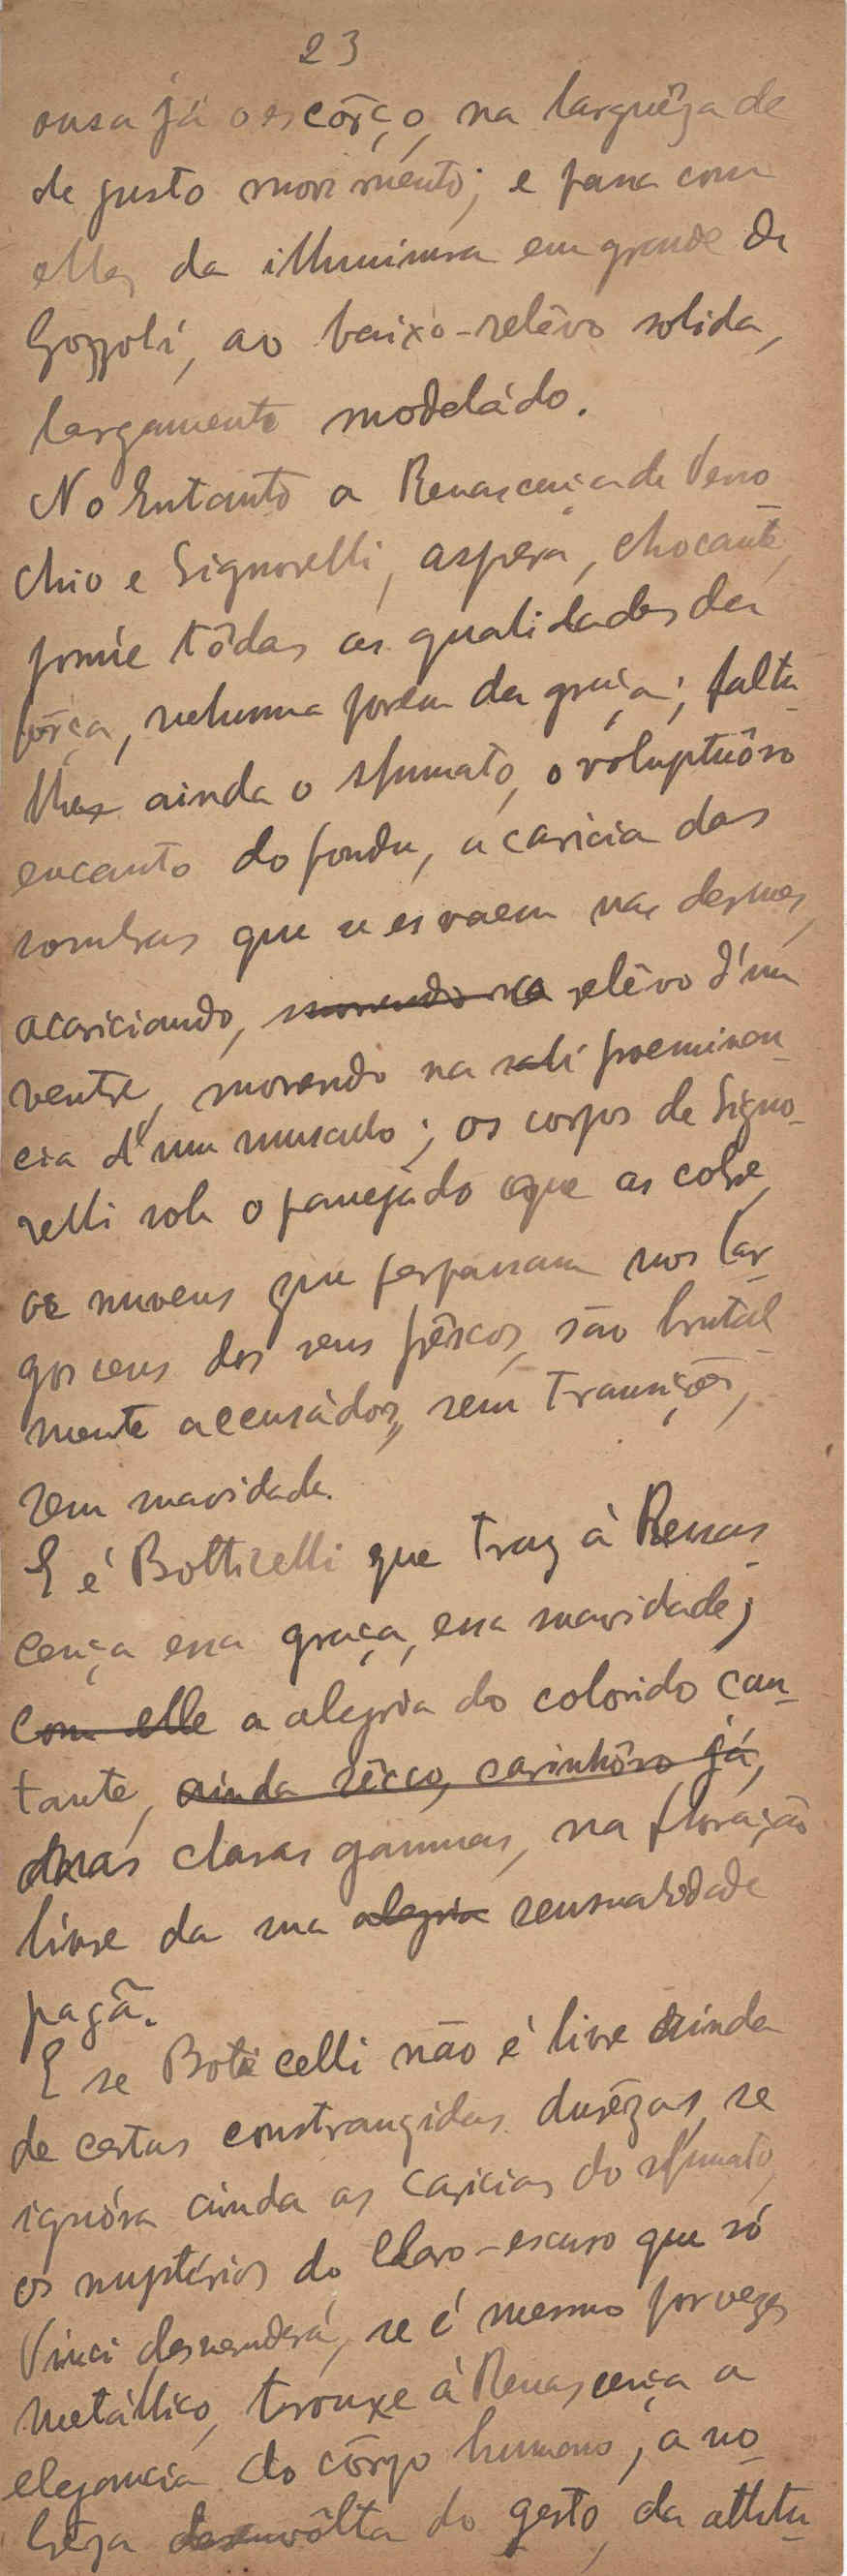 23
ousa já o escôrço, na larguêza de
de justo movimento; e passa com
elles da illuminura em grande de
Gozzoli, ao baixo-relêvo solida,
largamente modeládo.
No Entanto a Renascença de Verro
chio e Signorelli, aspera, chocante,
possúe tôdas as qualidades da
fôrça, nehuma porem da graça; falta-
lhe ainda o sfumato, o voluptuôso
encanto do fondu, a caricia das
sombras que se esvaem nas
acariciando, morrendo no relêvo d'um
ventre, morrendo na proeminen-
cia d'um musculo; os corpos de Signo-
relli sob o panejádo que as cobre,
as nuvens que perpassam nos lar-
gos ceus dos seus frêscos, são brutal-
mente accusádos, sem transições,
sem suavidade.
E é Botticelli que traz á Renas-
cença essa graça, essa suavidade;
com elle a alegria do colorido can-
tante, ainda sêcco, carinhôso já,
das claras gammas, na floração
livre da sua alegria sensualidade
pagã.
E se Boticelli não é livre ainda
de certas constrangidas durêzas, se
ignóra ainda as caricias do sfumato,
os mystérios do claro-escuro que só
Vinci desvendará, se é mesmo por vezes
metállico, trouxe á Renascença a
elegancia do côrpo humano, a no-
brêza desenvôlta do gesto, da attitu-